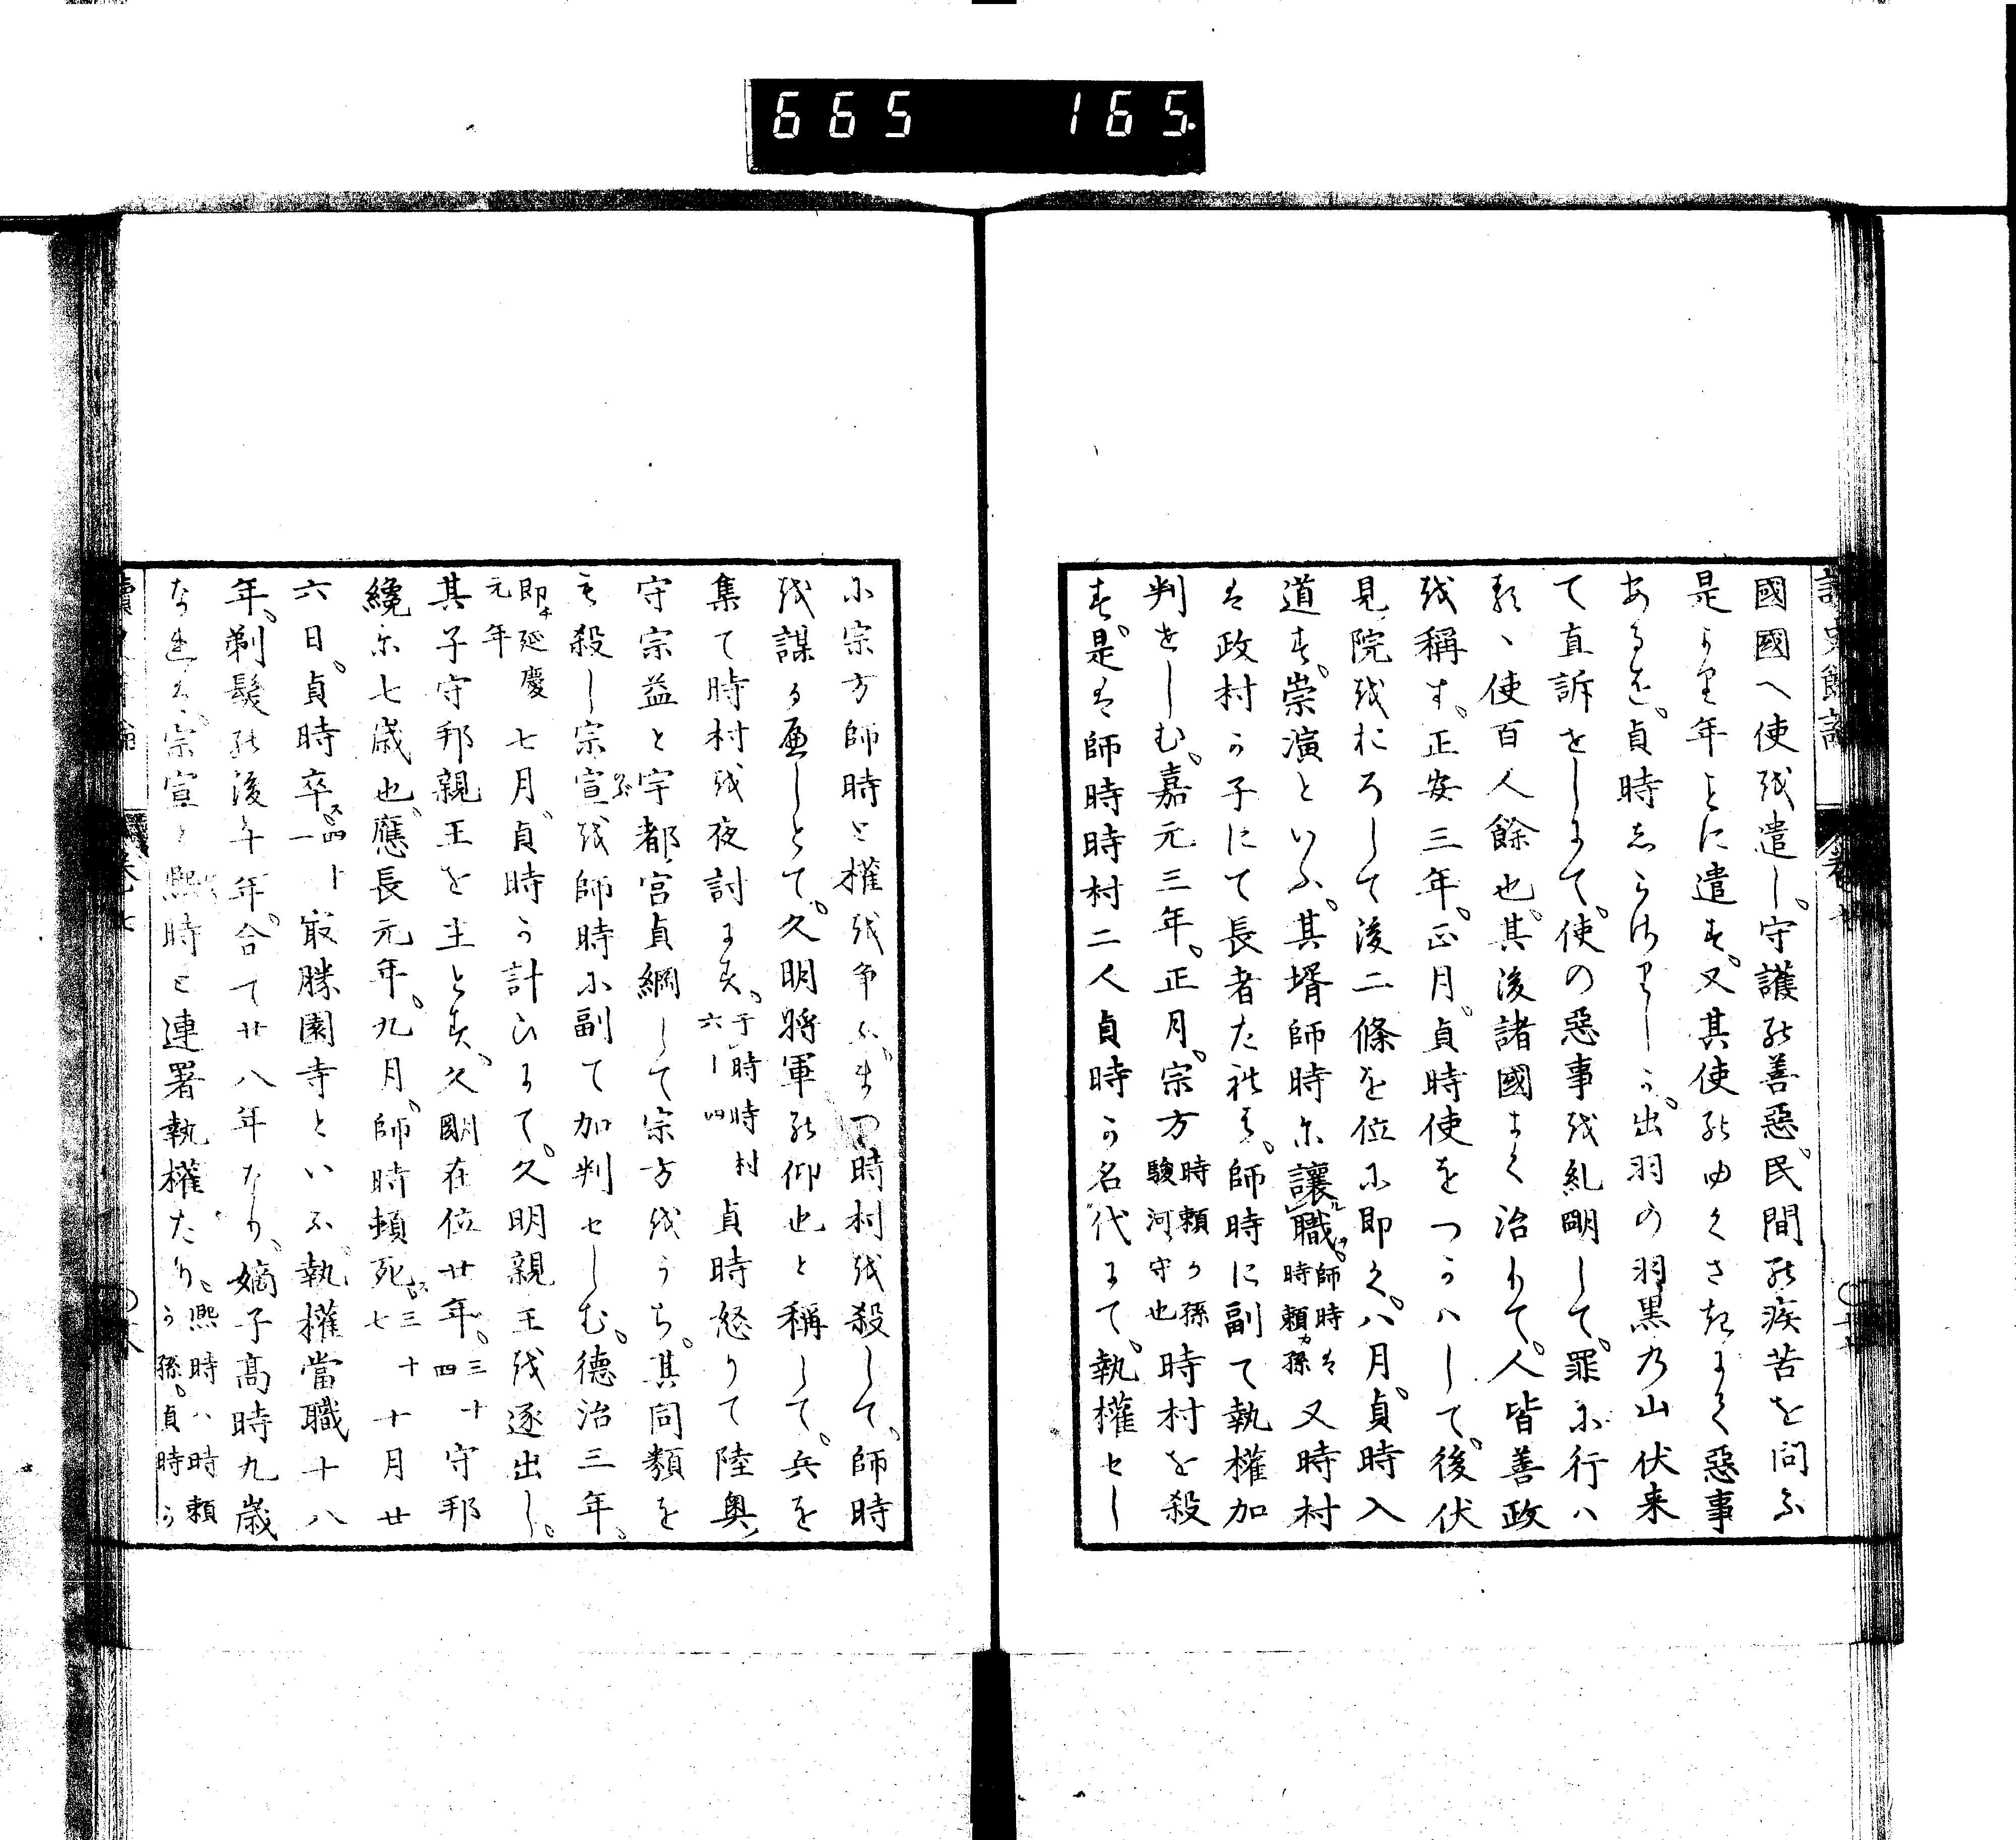 665 165.
國國へ使を遣し。守護の善惡。民間の疾苦を問ふ
是より年ことに遣す。又其使のゆくさきにて惡事
あるを。貞時しらさりしに。出羽の羽黒乃山伏来
て直訴をしけて。使の惡事を糺明して。罪に行ハ
るゝ使百人餘也。其後諸國よく治りて。人皆善政
を稱す。正安三年。正月。貞時使をつかハして。後伏
見院をおろして後二條を位に即く。八月。貞時入
道す。崇演といふ。其壻師時に讓職。師時は時頼カ孫又時村
は政村か子にて長者たれは。師時に副て執權加
判せしむ。嘉元三年。正月。宗方時頼か孫駿河守也時村を殺
す。是は師時時村二人貞時か名代にて。執權せし
に宗方師時と權を争ふ。まつ時村を殺して。師時
を謀るへしとて。久明將軍の仰也と稱して。兵を
集て時村を夜討にす。于時時村六十四貞時怒りて陸奥
守宗益と宇都宮貞綱して宗方をうち。其同類を
も殺し宗宣を師時に副て加判せしむ。德治三年。
即チ延慶元年七月。貞時か計ひにて。久明親王を逐出し。
其子守邦親王を主とす。久明在位廿年。三十四守邦
纔に七歳也。應長元年。九月。師時頓死三十七十月廿
六日。貞時卒四十一最勝園寺といふ。執權當職十八
年。剃髮の後十年。合て廿八年なり。嫡子髙時九歳
なれは。宗宣と凞時と連署執權たり。凞時ハ時頼か孫。貞時か